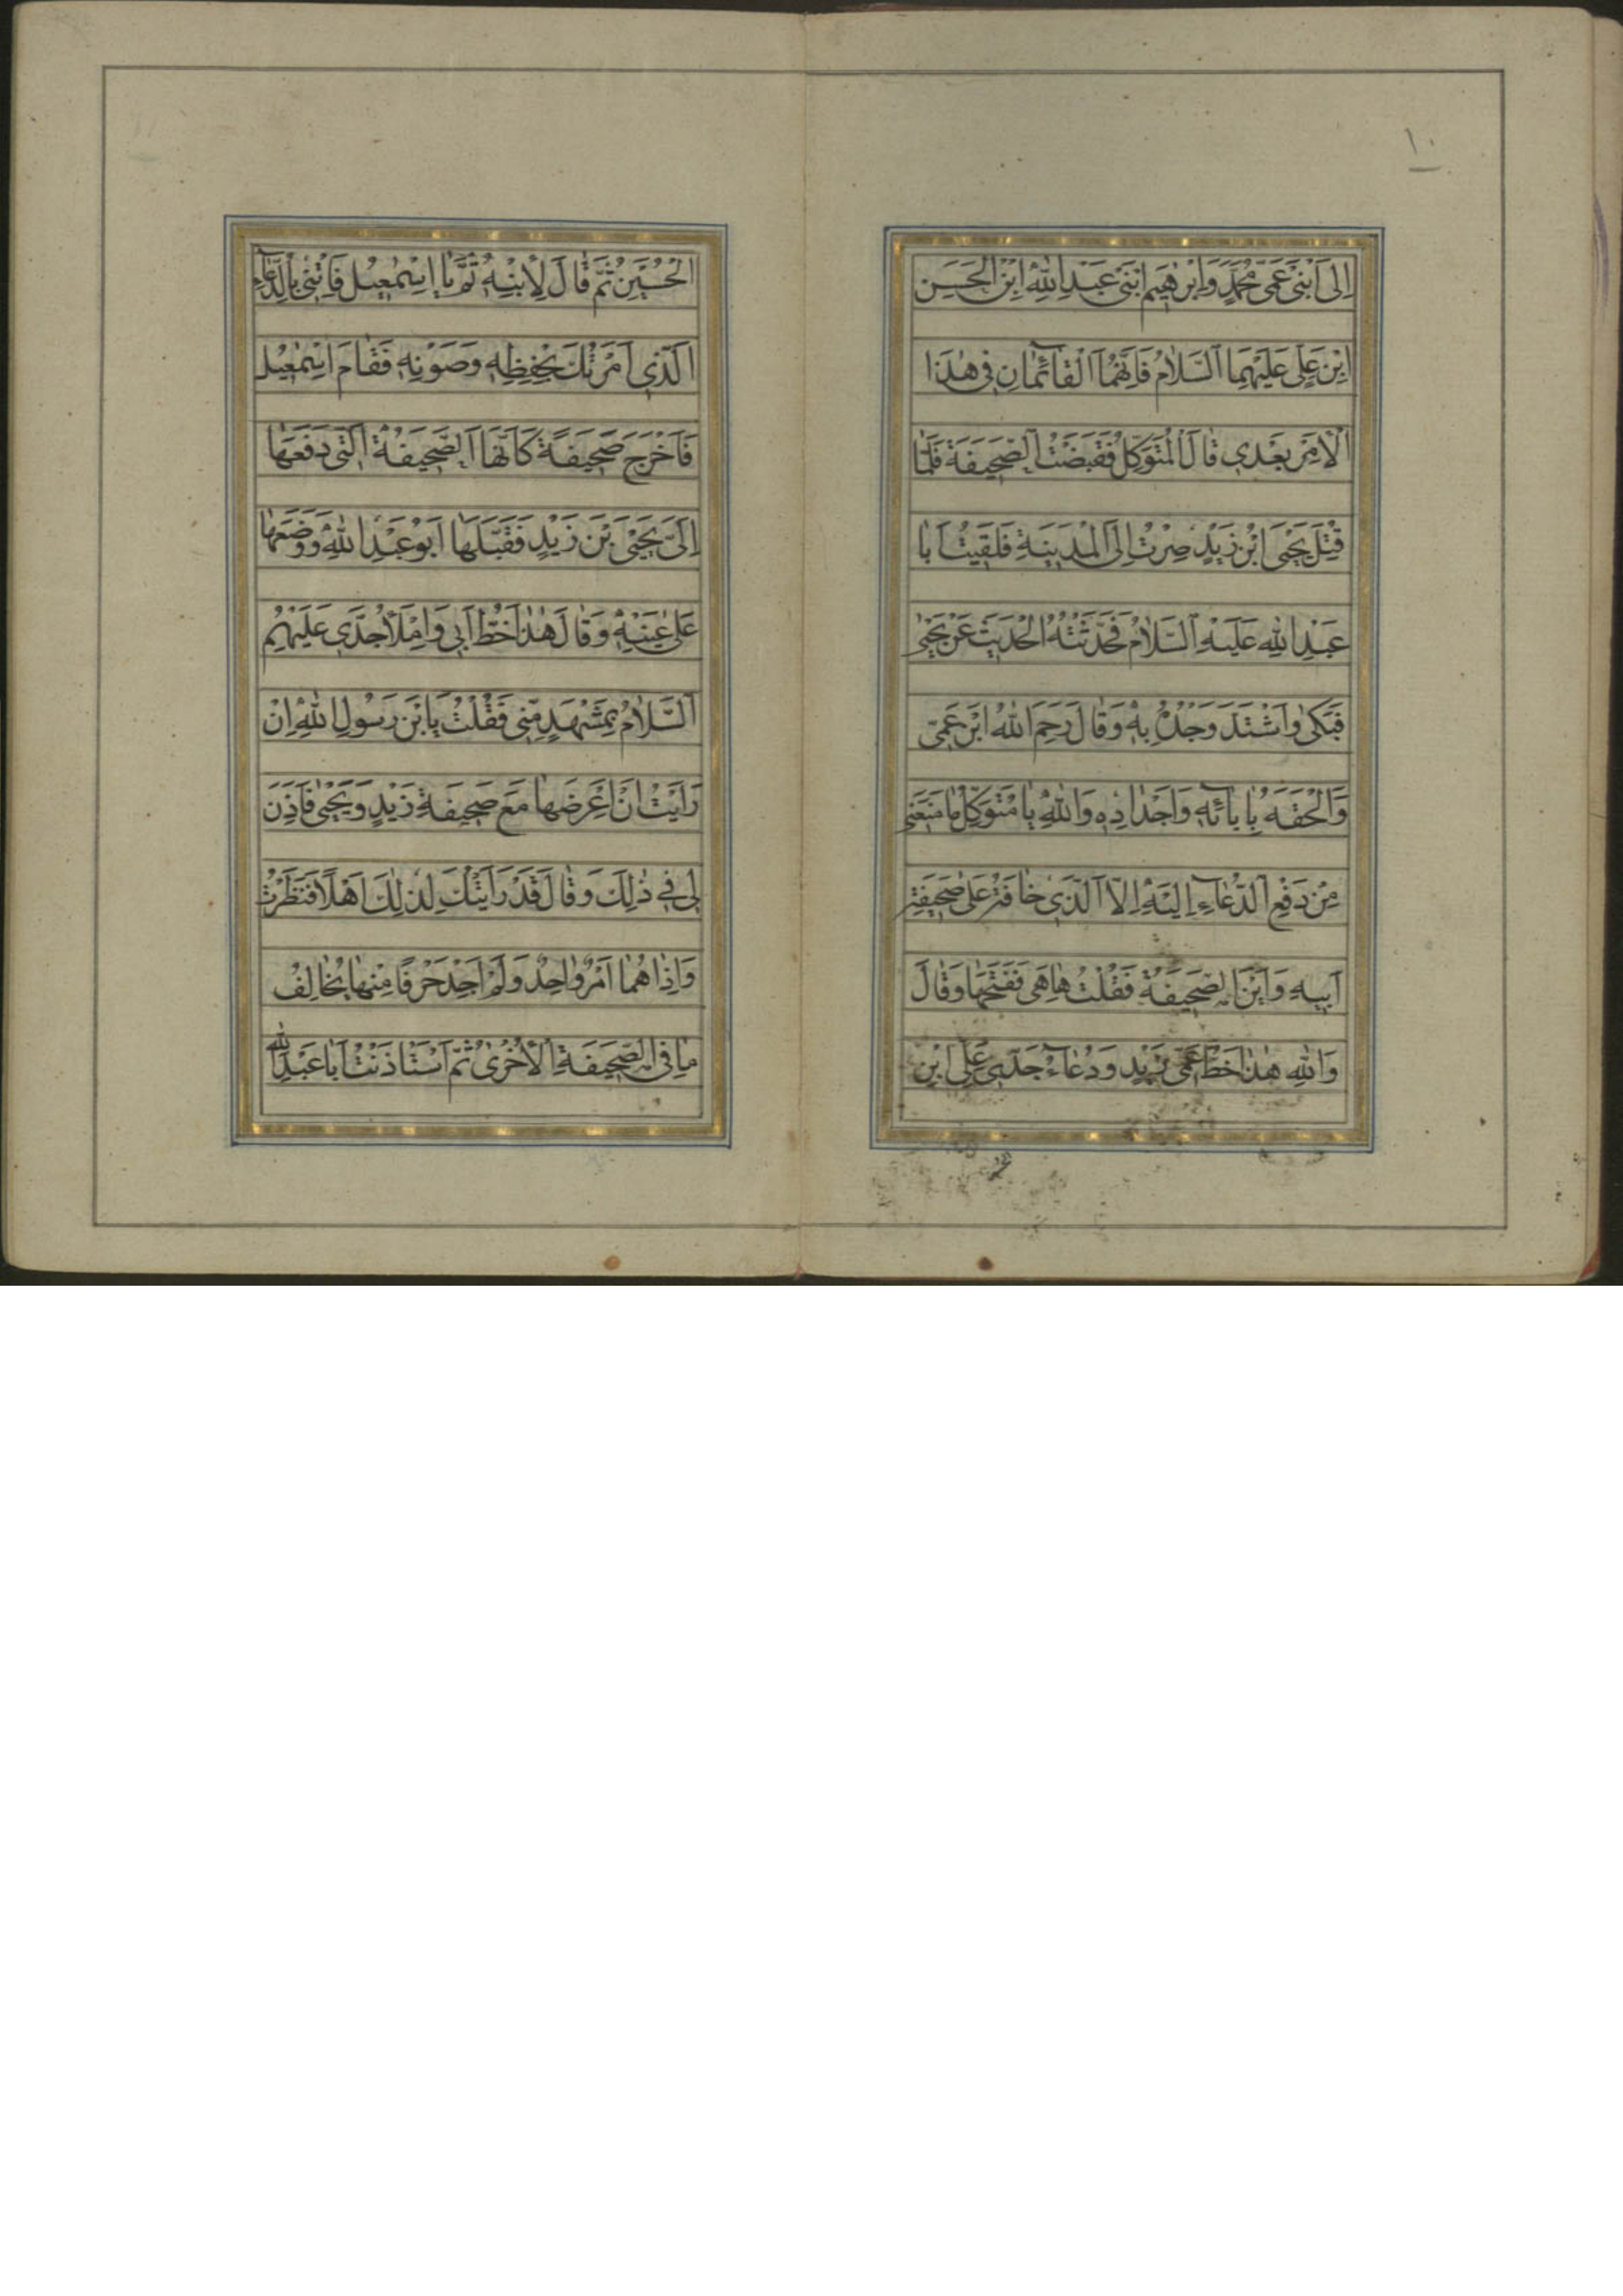 ١٠
اِلَى ابْنَىْ عَمّى مُحَمَّدٍ وَاِبْرٰهيمَ ابْنَىْ عَبْدِ اللّٰهِ ابْنِ الْحَسَنِ
ابْنِ عَلِىٍّ عَلَيْهِمَا السَّلَامُ فَاِنَّهُمَا الْقَائِمَانِ فى هٰذَا
الْاَمْرِ بَعْدى قَالَ الْمُتَوَكِّلُ فَقَبَضْتُ الصَّحيفَةَ فَلَمَّا
قُتِلَ يَحْيَى ابْنُ زَيْدٍ صِرْتُ اِلَى الْمَدينَةِ فَلَقيتُ اَبَا
عَبْدِ اللّٰهِ عَلَيْهِ السَّلَامُ فَحَدَّثْتُهُ الْحَديثَ عَنْ يَحْيٰى
فَبَكٰى وَاشْتَدَّ وَجْدُهُ بِهِ وَقَالَ رَحِمَ اللّٰهُ ابْنَ عَمّى
وَاَلْحَقَهُ بِاٰبَائِهِ وَاَجْدَادِهِ وَاللّٰهِ يَا مُتَوَكِّلُ مَا مَنَعَنى
مِنْ دَفْعِ الدُّعَاءِ اِلَيْهِ اِلَّا الَّذى خَافَهُ عَلٰى صَحيفَةِ
اَبيهِ وَاَيْنَ الصَّحيفَةُ فَقُلْتُ هَا هِىَ فَفَتَحَهَا وَقَالَ
وَاللّٰهِ هٰذَا خَطُّ عَمّى زَيْدٍ وَدُعَاءُ جَدّى عَلِىِّ ابْنِ
الْحُسَيْنِ ثُمَّ قَالَ لِابْنِهِ قُمْ يَا اِسْمٰعيلُ فَأْتِنى بِالدُّعَاءِ
الَّذى اَمَرْتُكَ بِحِفْظِهِ وَصَوْنِهِ فَقَامَ اِسْمٰعيلُ
فَاَخْرَجَ صَحيفَةً كَاَنَّهَا الصَّحيفَةُ الَّتى دَفَعَهَا
اِلَىَّ يَحْيَى بْنُ زَيْدٍ فَقَبَّلَهَا اَبُو عَبْدِ اللّٰهِ وَوَضَعَهَا
عَلٰى عَيْنِهِ وَقَالَ هٰذَا خَطُّ اَبى وَاِمْلَاءُ جَدّى عَلَيْهِمُ
السَّلَامُ بِمَشْهَدٍ مِنّى فَقُلْتُ يَابْنَ رَسُولِ اللّٰهِ اِنْ
رَاَيْتَ اَنْ اَعْرِضَهَا مَعَ صَحيفَةِ زَيْدٍ وَيَحْيٰى فَاَذِنَ
لى فى ذٰلِكَ وَقَالَ قَدْ رَاَيْتُكَ لِذٰلِكَ اَهْلًا فَنَظَرْتُ
وَاِذَا هُمَا اَمْرٌ وَاحِدٌ وَلَمْ اَجِدْ حَرْفًا مِنْهَا يُخَالِفُ
مَا فِى الصَّحيفَةِ الْاُخْرٰى ثُمَّ اسْتَأْذَنْتُ اَبَا عَبْدِ اللّٰهِ